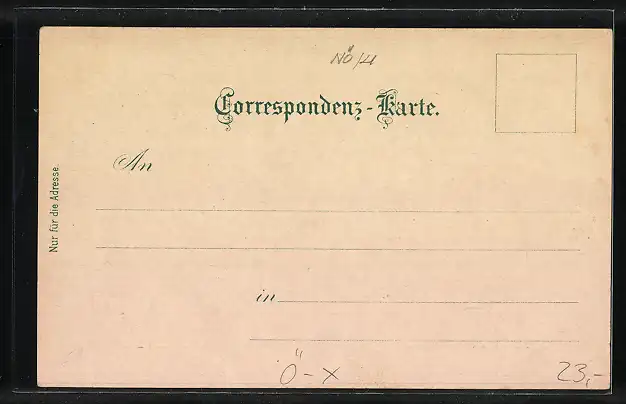 NÖ/4
Correspondenz-Karte.
An
Nur für die Adresse.
in
Ö-X
23,-